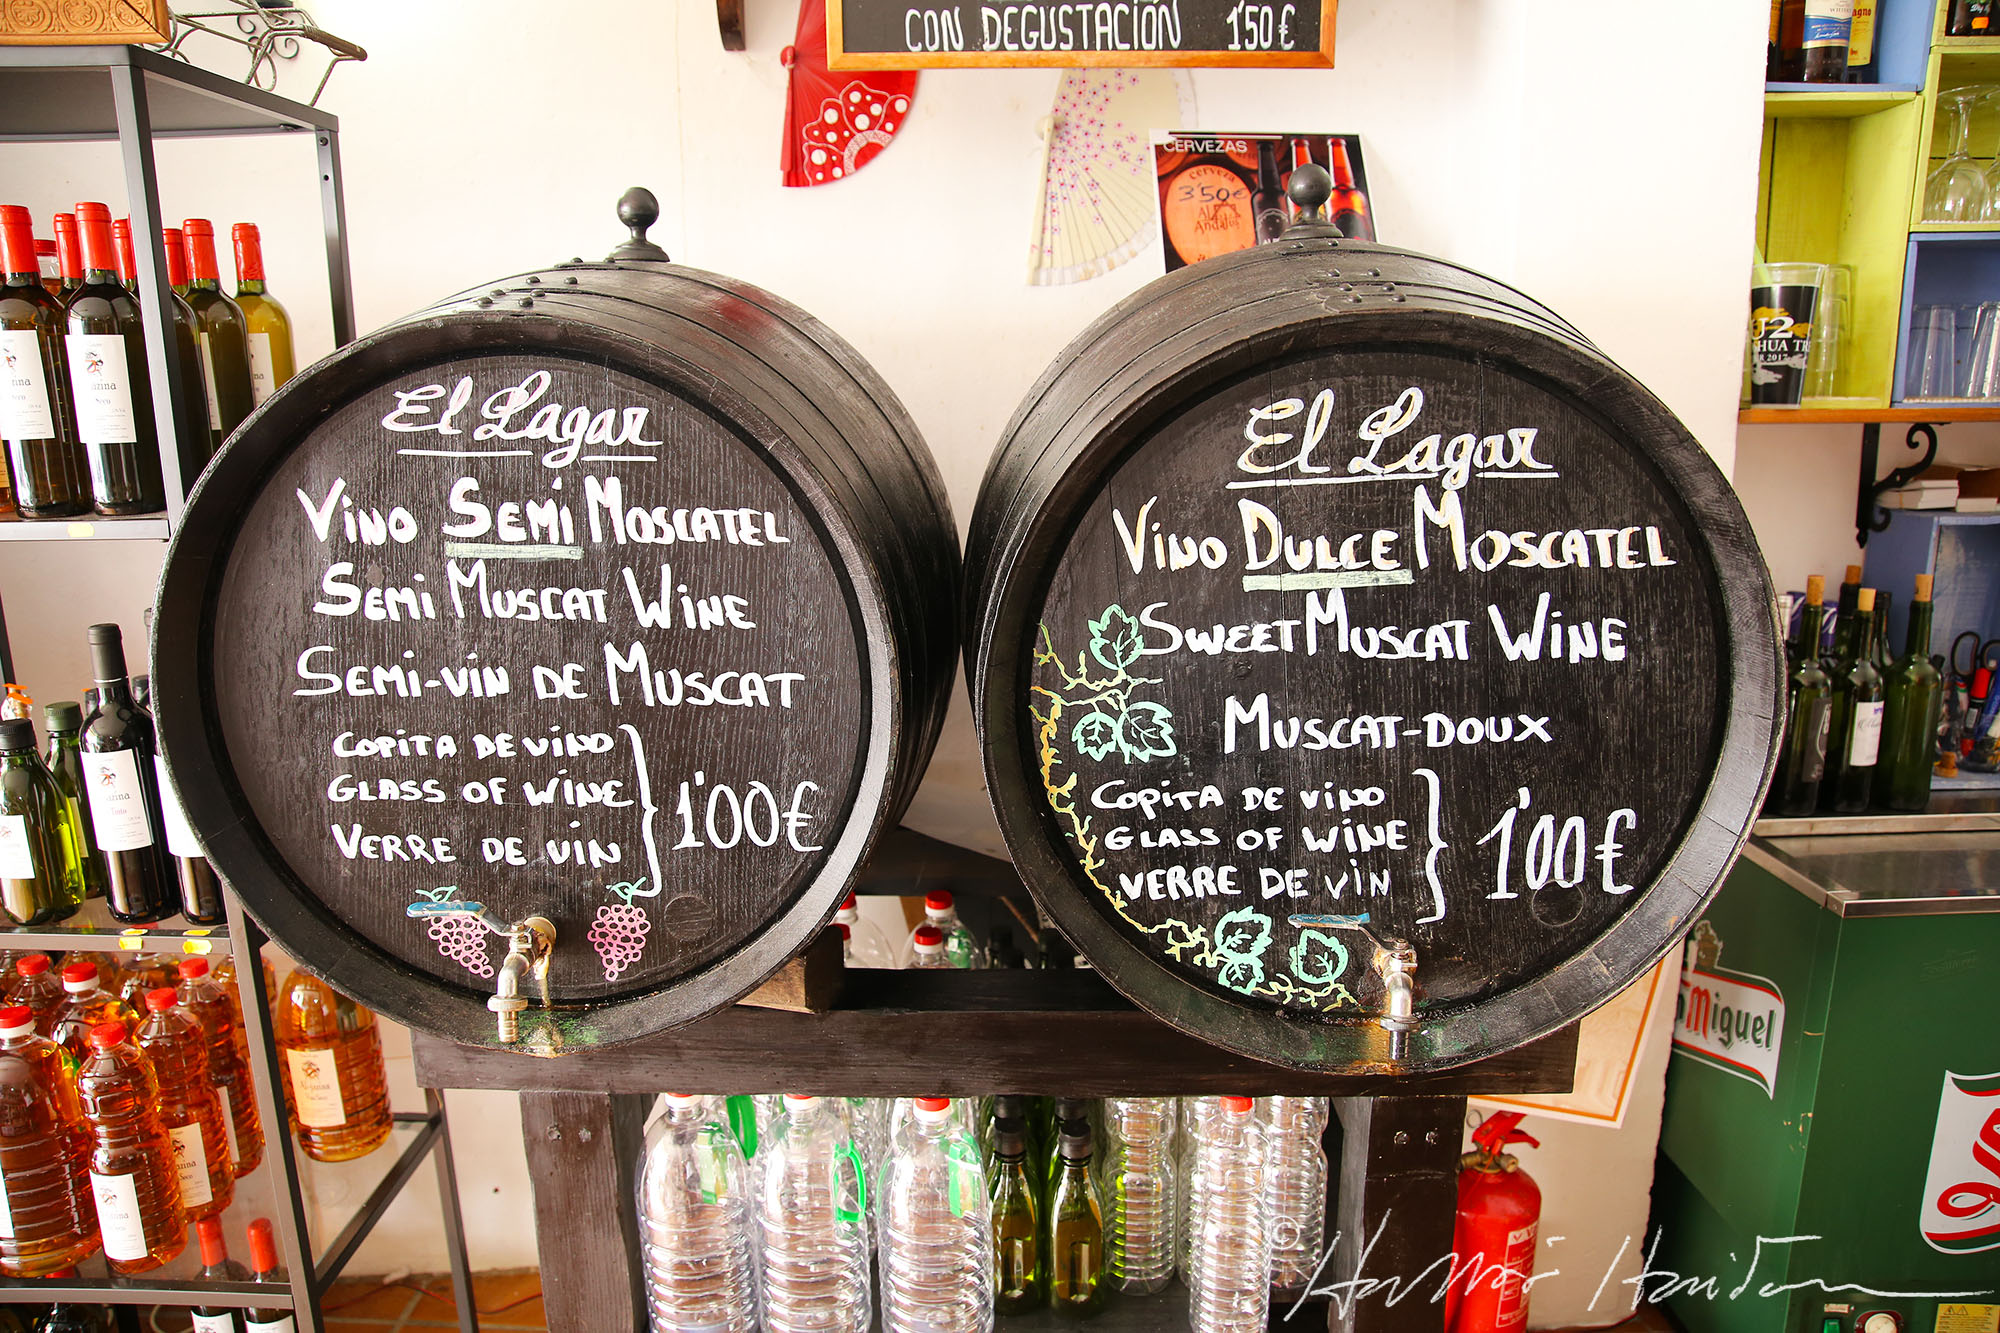 CON DEGUSTACIÓN 1'50 €
CERVEZAS
cerveza
3'50€
Al Andalus
El Lagar
VINO SEMI MOSCATEL
SEMI MUSCAT WINE
SEMI-VIN DE MUSCAT
COPITA DE VINO
GLASS OF WINE
VERRE DE VIN
1'00€
El Lagar
VINO DULCE MOSCATEL
SWEET MUSCAT WINE
MUSCAT-DOUX
COPITA DE VINO
GLASS OF WINE
VERRE DE VIN
1'00€
U2
HUA TR
R 2017
Miguel